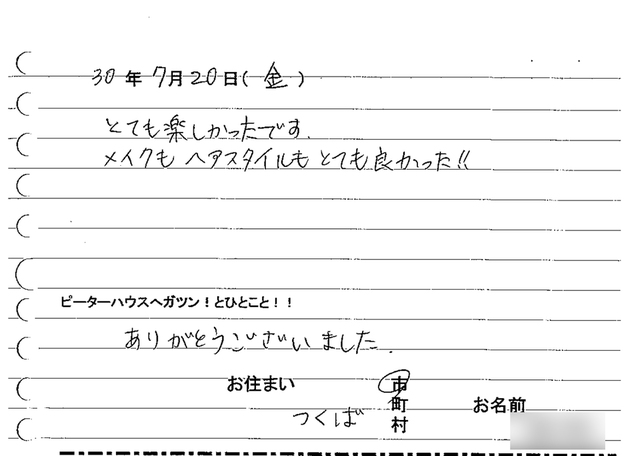 30年 7月20日(金)
とても楽しかったです.
メイクも ヘアスタイルも とても良かった!!
ピーターハウスへガツン!とひとこと!!
ありがとうございました.
お住まい つくば 市
町
村
お名前